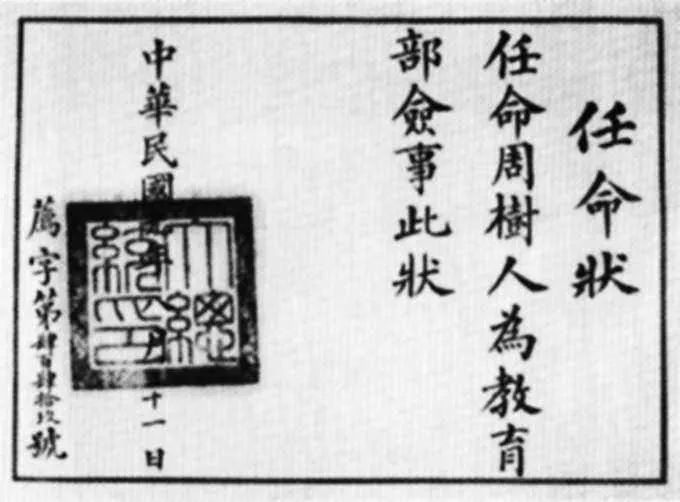 任命狀
任命周樹人為教育
部僉事此狀
中華民國
十一日
大總
統印
薦字第肆百肆拾玖號